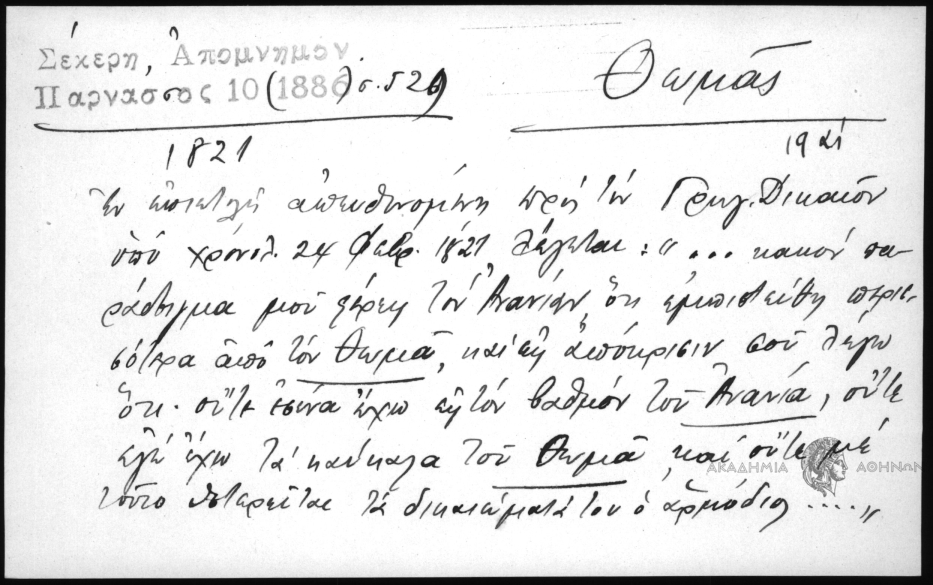 Σέκερη, Ἀπομνημον
Παρνασσος 10 (1886) σ. 526
Θωμᾶς
1821
19 21
Ἐν ἐπιστολῇ ἀπευθυνομένῃ πρὸς τὸν Γρηγ. Δικαῖον
ὑπὸ χρονολ. 24 Φεβρ. 1821 λέγεται: "... κακὸν πα-
ράδειγμα μοῦ φέρεις τὸν Ἀνανίαν, ὅτι ἐμπιστεύθη περισ-
σότερα ἀπὸ τὸν Θωμᾶ, καὶ εἰς ἀπόκρισιν σοῦ λέγω
ὅτι οὔτε ἐσένα ἔχω εἰς τὸν βαθμὸν τοῦ Ἀνανία, οὔτε
ἐγὼ ἔχω τὰ καύκαλα τοῦ Θωμᾶ, καὶ οὔτε μὲ
τοῦτο ὑστερεῖται τὰ δικαιώματά του ὁ ἁρμόδιος ...."
ΑΚΑΔΗΜΙΑ ΑΘΗΝΩΝ